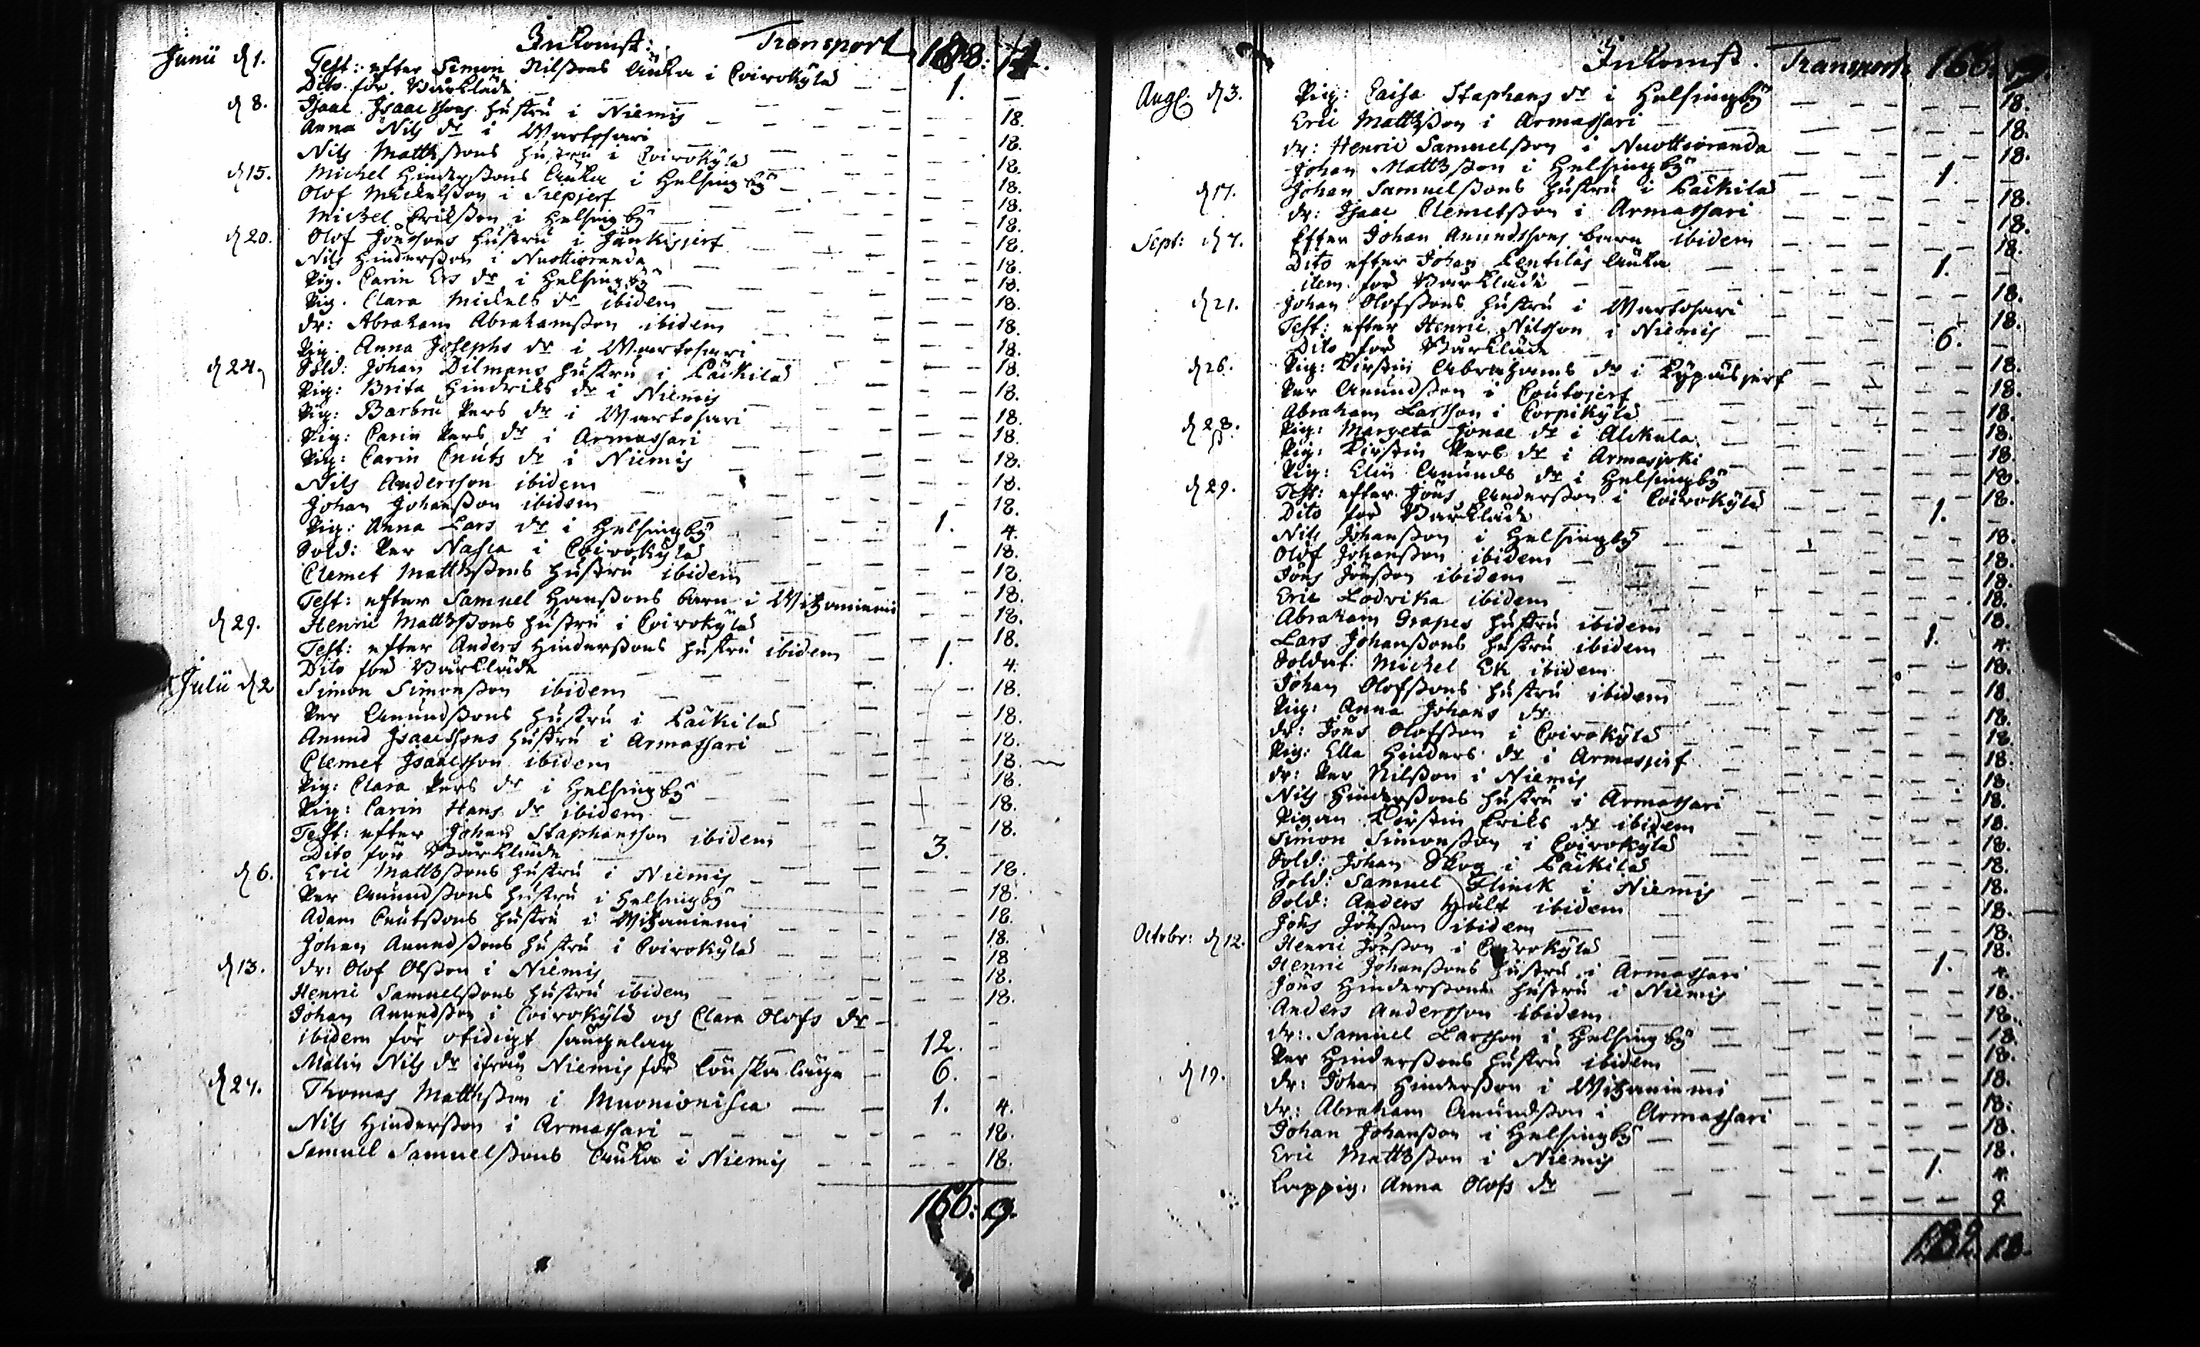 Inkomst: Transport
Junii d 1. Test: efter Simon Nilssons änka i Coirokylä
Dito för Bårkläde 1. –
d 8. Isaac Isaacssons hustru i Niemis 18.
Anna Nils dr i Martosari 18.
Nils Matthssons hustru i Coirokylä 18.
d 15. Michel Hinderssons änka i Helsingby 18.
Olof Michelsson i Siepijerf 18.
Michel Eriksson i Helsingby 18.
d 20. Olof Jönssons hustru i Jänkisjerf 18.
Nils Hindersson i Nuottioranda 18.
Pig. Carin Ers dr i Helsingby 18.
Pig. Clara Michels dr ibidem 18.
dr: Abraham Abrahamsson ibidem 18.
Pig. Anna Josephs dr i Martosari 18.
d 24. Sold: Johan Dilmans hustru i Päckilä 18.
Pig: Brita Hindriks dr i Niemis 18.
Pig: Barbru Pers dr i Martosari 18.
Pig: Carin Pers dr i Armassari 18.
Pig: Carin Cnuts dr i Niemis 18.
Nils Andersson ibidem 18.
Johan Johansson ibidem 18.
Pig: Anna Lars dr i Helsingby 1. 4.
Sold: Per Nasca i Coirokylä 18.
Clemet Matthssons hustru ibidem 18.
Test: efter Samuel Hanssons barn i Witzaniemi 18.
d 29. Henric Matthssons hustru i Coirokylä 18.
Test: efter Anders Hinderssons hustru ibidem 18.
Dito för Bårkläde 1. 4.
Julii d 2 Simon Simonsson ibidem 18.
Per Anundssons hustru i Päckilä 18.
Anund Isaacssons hustru i Armassari 18.
Clemet Isaacsson ibidem 18.
Pig: Clara Pers dr i Helsingby 18.
Pig: Carin Hans dr ibidem 18.
Test: efter Johan Staphansson ibidem 18.
Dito för Bårkläde 3. –
d 6. Eric Matthssons hustru i Niemis 18.
Per Anundssons hustru i Helsingby 18.
Adam Cnutssons hustru i Witzaniemi 18.
Johan Anundssons hustru i Coirokylä 18.
d 13. dr: Olof Olsson i Niemis 18.
Henric Samuelssons hustru ibidem 18.
Johan Anundsson i Coirokylä och Clara Olofs dr –
ibidem för otidigt sängelag 12. –
Malin Nils dr ifrån Niemis för 6. –
d 27. Thomas Matthsson i Muonionisca 1. 4.
Nils Hindersson i Armassari 18.
Samuel Samuelssons änka i Niemis 18.
166: 9.
Inkomst. Transport: 166. 9.
Aug: d 3. Pig: Caisa Staphans dr i Helsingby 18.
Eric Matthsson i Armassari 18.
dr: Henric Samuelsson i Nuottioranda 18.
Johan Matthsson i Helsingby 1. –
d 17. Johan Samuelssons hustru i Päckilä 18.
dr: Isaac Clemetsson i Armassari 18.
Sept: d 7. Efter Johan Anundssons barn ibidem 18.
Dito efter Johan Lentilas änka 1. –
item för Bårkläde 18.
d 21. Johan Olofssons hustru i Martosari 18.
Test: efter Henric Nilsson i Niemis 6. –
Dito för Bårkläde 18.
d 26. Pig: Kirstin Abrahams dr i Kypäsjerf 18.
Per Anundsson i Coutojerf 18.
Abraham Larsson i Corpikylä 18.
d 28. Pig: Margeta Jonae dr i Alckula 18.
Pig: Kirstin Pers dr i Armasjoki 18.
Pig: Elin Anunds dr i Helsingby 18.
d 29. Test: efter Jöns Andersson i Coirokylä
Dito för Bårkläde 1. –
Nils Johansson i Helsingby 18.
Olof Johansson ibidem 18.
Jöns Jönsson ibidem 18.
Eric Lodvika ibidem 18.
Abraham Grapes hustru ibidem 18.
Lars Johanssons hustru ibidem 1. 4.
Soldat: Michel Ek ibidem 18.
Johan Olofssons hustru ibidem 18.
Pig: Anna Johans dr 18.
dr: Jöns Olofsson i Coirokylä 18.
Pig: Ella Hinders dr i Armasjerf 18.
dr: Per Nilsson i Niemis 18.
Nils Hinderssons hustru i Armassari 18.
Pigan Kirstin Eriks dr ibidem 18.
Simon Simonsson i Coirokylä 18.
Sold: Johan Skog i Päckilä 18.
Sold: Samuel Flinck i Niemis 18.
Sold: Anders Hult ibidem 18.
Jöns Jönsson ibidem 18.
Octobr: d 12. Henric Jönsson i Coirokylä 18.
Henric Johanssons hustru i Armassari 1. 4.
Jöns Hinderssons hustru i Niemis 18.
Anders Andersson ibidem 18.
dr: Samuel Larsson i Helsingby 18.
Per Hinderssons hustru ibidem 18.
d 19. dr: Johan Hindersson i Witzaniemi 18.
dr: Abraham Anundsson i Armassari 18.
Johan Johansson i Helsingby 18.
Eric Matthsson i Niemis 1. 4.
Lappig. Anna Olofs dr 9.
182. 18.